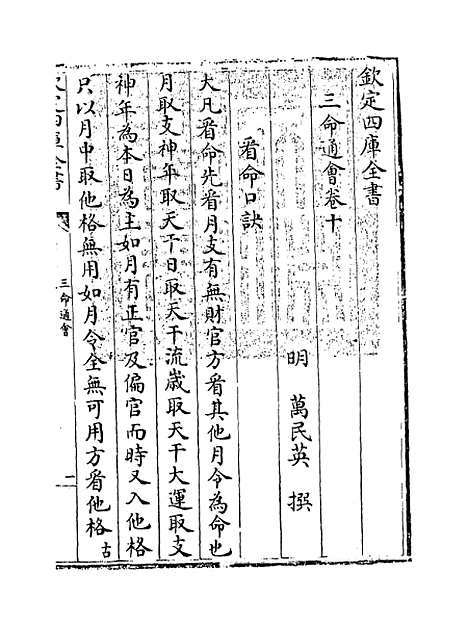 欽定四庫全書
三命通會卷十
明 萬民英 撰
看命口訣
大凡看命先看月支有無財官方看其他月令為命也
月取支神年取天干日取天干流歲取天干大運取支
神年為本日為主如月有正官及偏官而時又入他格
只以月中取他格無用如月令全無可用方看他格古
三命通會
一